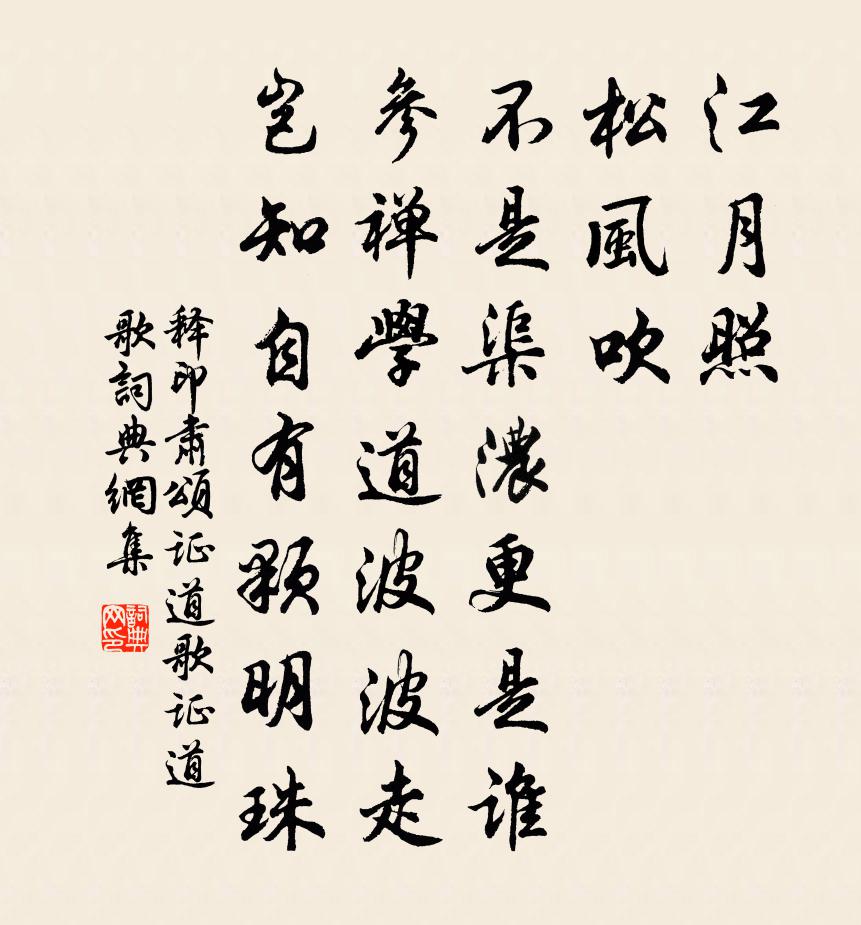 江月照
松風吹
不是渠濃更是誰
參禅學道波波走
豈知自有顆明珠
释印肅頌证道歌证道
歌詞典網集
詞典
网印